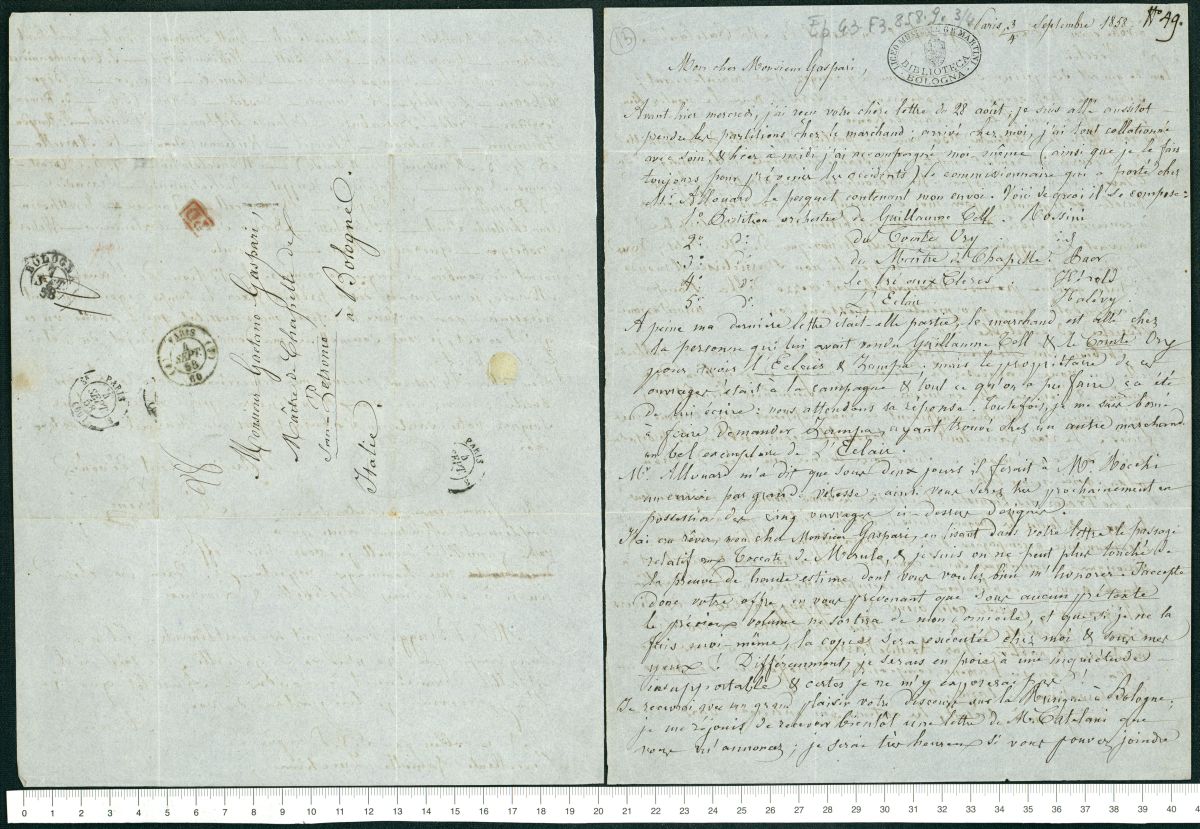 BOLOGNA
7
SET
58
PD
PARIS
4
SEPT
58
60
PARIS
Monsieur Gaetano Gaspari,
Maître de Chapelle de
San-Petronio
à Bologne.
Italie.
PARIS
(13)
Ep. G3. F3. 858. 9. 3/4
Paris, 3/4 Septembre 1858.
No 49.
LICEO MUSICALE G.B. MARTINI
BIBLIOTECA
BOLOGNA
Mon cher Monsieur Gaspari,
Avant hier mercredi, j'ai reçu votre chère lettre de 28 août; je suis allé aussitôt
prendre les partitions chez le marchand; arrivé chez moi, j'ai tout collationné
avec soin, & hier à midi j'ai accompagné moi même (ainsi que je le fais
toujours pour prévenir les accidents) le commissionnaire qui a porté chez
M. Allouard le paquet contenant mon envoi. Voici de quoi il se compose:
1o Partition orchestre de Guillaume Tell. Rossini
2o do du Comte Ory id
3o do du Maître de Chapelle. Paer
4o do Le Pré aux Clercs. Hérold
5o do L'Eclair Halévy
A peine ma dernière lettre était-elle partie, le marchand est allé chez
la personne qui lui avait vendu Guillaume Tell & le Comte Ory
pour avoir l'Eclair & Zampa; mais le propriétaire de ces
ouvrages était à la campagne & tout ce qu'on a pu faire ça été
de lui écrire: nous attendons sa réponse. Toutefois, je me suis borné
à faire demander Zampa, ayant trouvé chez un autre marchand
un bel exemplaire de l'Eclair.
Mr. Allouard m'a dit que sous deux jours il ferait à Mr. Rocchi
un envoi par grande vitesse; ainsi vous serez très prochainement en
possession des cinq ouvrages ci-dessus désignés.
J'ai cru rêver, mon cher Monsieur Gaspari, en lisant dans votre lettre le passage
relatif aux Toccate de Merulo, & je suis on ne peut plus touché de
la preuve de haute estime dont vous voulez bien m'honorer. J'accepte
donc votre offre, en vous prévenant que sous aucun prétexte
le précieux volume ne sortira de mon domicile, et que si je ne la
fais moi-même, la copie sera exécutée chez moi & sous mes
yeux! Différemment, je serais en proie à une inquiétude
insupportable & certes je ne m'y exposerai pas!
Je recevrai avec un grand plaisir votre discours sur la Musique à Bologne;
je me réjouis de recevoir bientôt une lettre de Mr. Catelani que
vous m'annoncez; je serai très heureux si vous pouvez joindre
0 1 2 3 4 5 6 7 8 9 10 11 12 13 14 15 16 17 18 19 20 21 22 23 24 25 26 27 28 29 30 31 32 33 34 35 36 37 38 39 40 4